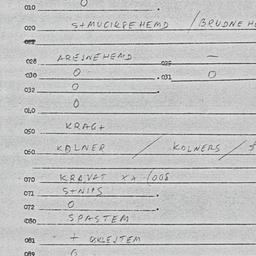 010 0
020 S+MUCIRPE HEMD / BRUDNE H
028 AREJNEHEMD 029 —
030 0 031 0
032 0
0
040
050 KRAG+
060 KOLNER / KOLNERS /
070 KRAVAT X+ 1008
071 S+NIPS
072 0
080 SPASTEM
081 + GKLEJTEM
089 0